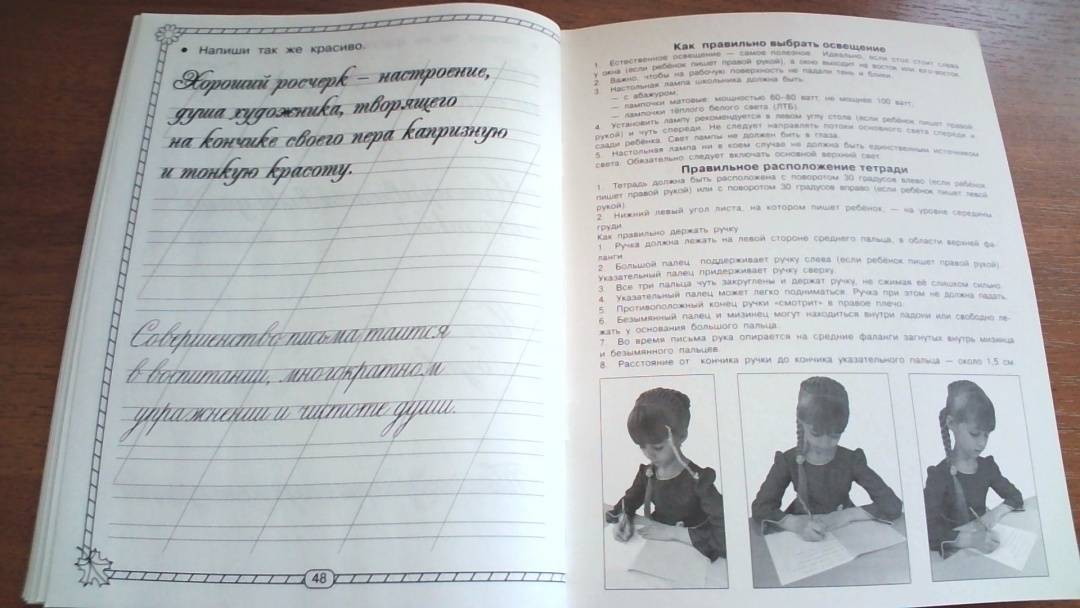 • Напиши так же красиво.
Хороший росчерк – настроение,
душа художника, творящего
на кончике своего пера капризную
и тонкую красоту.
Совершенство письма таится
в воспитании, многократном
упражнении и чистоте души.
48
Как правильно выбрать освещение
1. Естественное освещение — самое полезное. Идеально, если стол стоит слева
у окна (если ребёнок пишет правой рукой), а окно выходит на восток или юго-восток.
2. Важно, чтобы на рабочую поверхность не падали тень и блики.
3. Настольная лампа школьника должна быть:
— с абажуром;
— лампочки матовые: мощностью 60–80 ватт, не мощнее 100 ватт;
— лампочки тёплого белого света (ЛТБ).
4. Установить лампу рекомендуется в левом углу стола (если ребёнок пишет правой
рукой) и чуть спереди. Не следует направлять потоки основного света спереди и
сзади ребёнка. Свет лампы не должен бить в глаза.
5. Настольная лампа ни в коем случае не должна быть единственным источником
света. Обязательно следует включать основной верхний свет.
Правильное расположение тетради
1. Тетрадь должна быть расположена с поворотом 30 градусов влево (если ребёнок
пишет правой рукой) или с поворотом 30 градусов вправо (если ребёнок пишет левой
рукой).
2. Нижний левый угол листа, на котором пишет ребёнок, — на уровне середины
груди.
Как правильно держать ручку
1. Ручка должна лежать на левой стороне среднего пальца, в области верхней фа-
ланги.
2. Большой палец поддерживает ручку слева (если ребёнок пишет правой рукой).
Указательный палец придерживает ручку сверху.
3. Все три пальца чуть закруглены и держат ручку, не сжимая её слишком сильно.
4. Указательный палец может легко подниматься. Ручка при этом не должна падать.
5. Противоположный конец ручки «смотрит» в правое плечо.
6. Безымянный палец и мизинец могут находиться внутри ладони или свободно ле-
жать у основания большого пальца.
7. Во время письма рука опирается на средние фаланги загнутых внутрь мизинца
и безымянного пальцев.
8. Расстояние от кончика ручки до кончика указательного пальца — около 1,5 см.